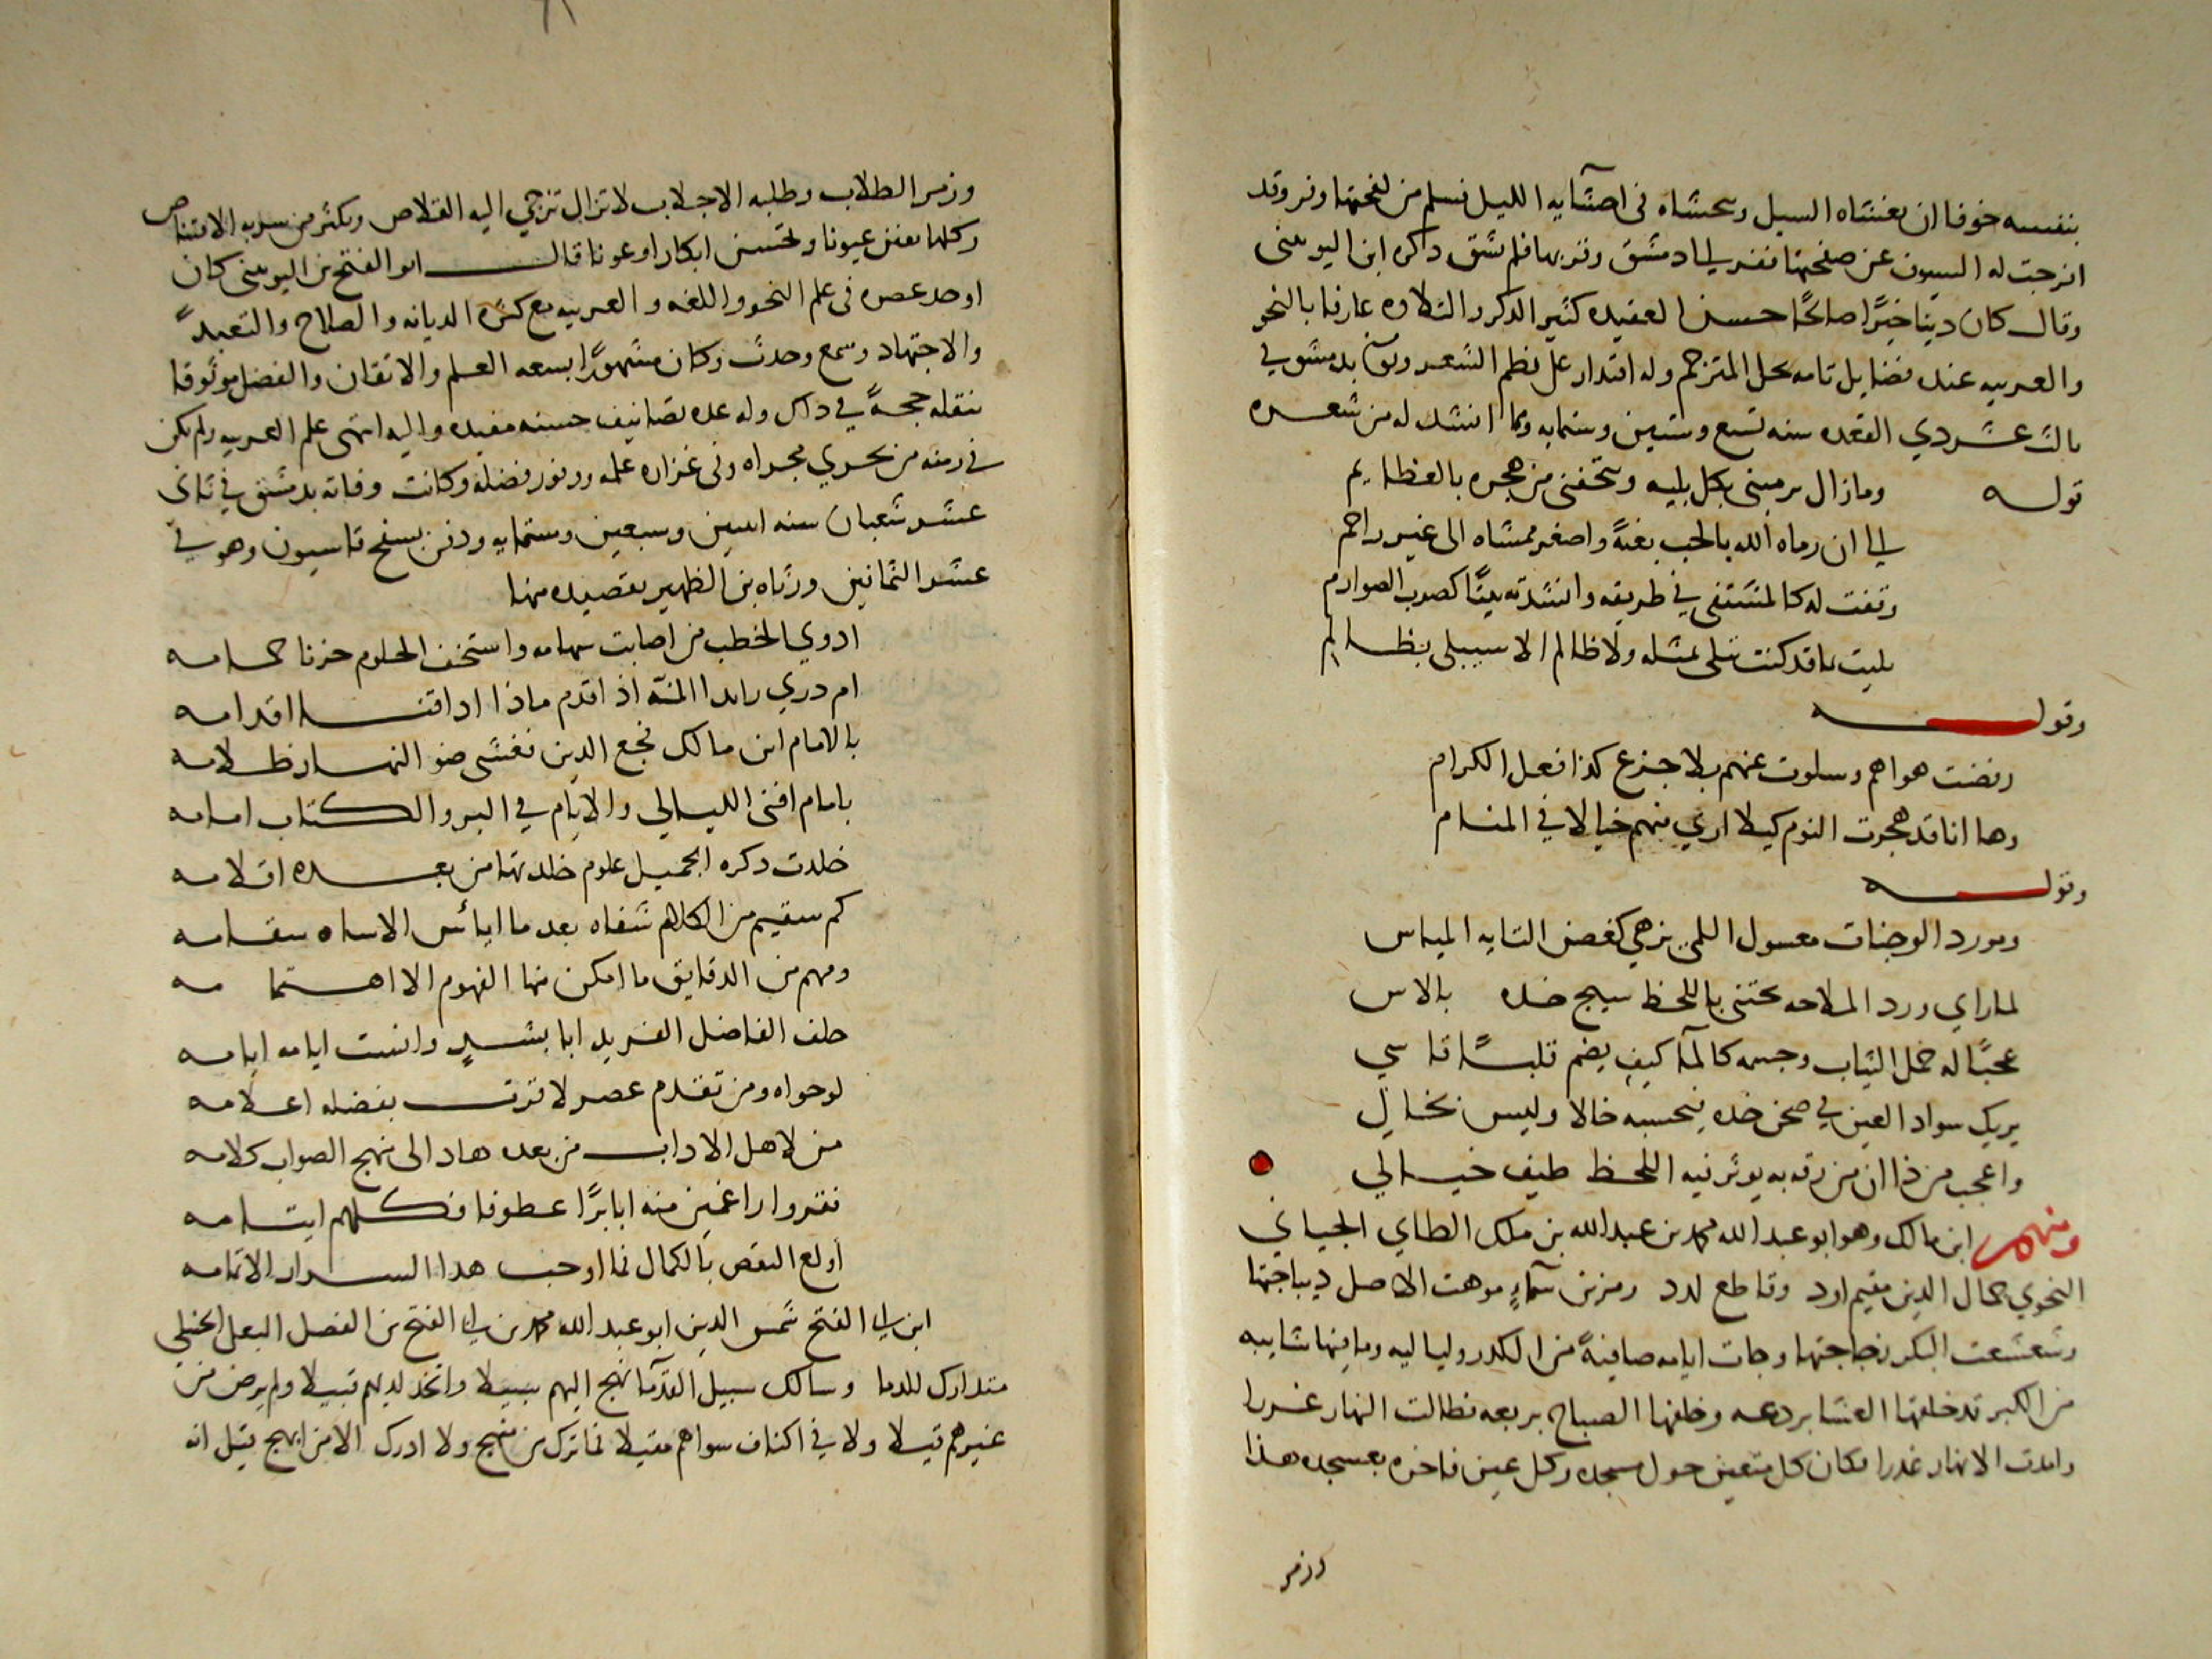 بنفسه خوفا ان يغشاه السيل ويحشاه فى احشايه الليل فسلم من لفحتها وفر وقد
انزجت له السيون عن صفحتها ففر الى دمشق وقر بها فلم تشق ذكره ابن اليونينى
وقال كان دينا خيرًا صالحًا حسن العقيده كثير الذكر والتلاوه عارفا بالنحو
والعربيه عنده فضايل تامه بحل المترجم وله اقتدار على نظم الشعر وتوفى بدمشق في
ثالث عشر ذي القعده سنه تسع وستين وستمايه ومما انشد له من شعره
قوله وما زال يرمينى بكل بليه ويتحفنى من هجره بالعظايم
الى ان رماه الله بالحب بغتةً واصغر ممشاه الى غير راحم
وقفت له كالمشتفى في طريقه وانشدته بيتًا كصوب الصوارم
بليت بما قد كنت تبلى بمثله ولا ظالم الا سيبلى بظالم
وقوله
رفضت هواهم وسلوت عنهم بلا جزع كذا فعل الكرام
وها انا قد هجرت النوم كيلا ارى منهم خيالا في المنام
وقوله
ومورد الوجنات معسول اللمى يزهي كغصن البانه المياس
لما راي ورد الملاحه يجتنى باللحظ سيج خده بالاس
عجبًا له خمل الثياب وجسمه كالمآ كيف يضم قلبًا قاسي
يريك سواد العين في صحن خده فيحسبه خالا وليس بخال
واعجب من ذا ان من رقه به يوثر فيه اللحظ طيف خيالي
ومنهم ابن مالك وهو ابو عبد الله محمد بن عبد الله بن ملك الطاي الجياني
النحوي جمال الدين مقيم اود وقاطع لدد ومزين سمآء موهت الاصل ديباجتها
وشعشعت البكر زجاجتها وجات ايامه صافيةً من الكدر ولياليه وما فيها شايبه
من الكبر قد خلفها العشا بردعه وخلفها الصباح بربعه فطالت النهار غررا
وامدت الانهار غدرا فكان كل متعين حول مسجده وكل عين فاخره بعسجده هذا
وزمر
وزمر الطلاب وطلبه الاجلاب لا تزال تزجي اليه القلاص وتكثر من سربه الاقتناص
وكلما يفنن عيونا وتحتسن ابكارا وعونا قال ابو الفتح بن اليونينى كان
اوحد عصره فى علم النحو واللغه والعربيه مع كثره الديانه والصلاح والتعبد
والاجتهاد وسمع وحدث وكان مشهورًا بسعه العلم والاتقان والفضل موثوقا
بنقله حجةً في ذلك وله عده تصانيف حسنه مفيده واليه انتهى علم العربيه ولم يكن
في زمنه من يجري مجراه وفى غزاره علمه ووفور فضله وكانت وفاته بدمشق في ثانى
عشر شعبان سنه اثنين وسبعين وستمايه ودفن بسفح قاسيون وهو في
عشر الثمانين ورثاه بن الظهير بقصيده منها
ادري الخطب من اصابت سهامه واستخف الحلوم حزنا حمامه
ام دري رايد المنيه اذ اقدم ماذا اذاقنا اقدامه
بالامام ابن مالك فجع الدين فغشى ضو النهار ظلامه
بامام افنى الليالي والايام في البر والكتاب امامه
خلدت ذكره الجميل علوم خلدتها من بعده اقلامه
كم سقيم من الكلام شفاه بعد ما ايأس الاساه سقامه
ومهم من الدقايق ما امكن منها الفهوم الا اهتمامه
خلف الفاضل الفريد ابا بشر وانست ايامه ايامه
لو حواه ومن تقدم عصر لاقرت بفضله اعلامه
من لاهل الاداب من بعده هاد الى نهج الصواب كلامه
فقدوا راغمين منه ابا برًا عطوفا فكلهم ايتامه
اولع النقص بالكمال فما اوجب هذا السرار الا تمامه
ابن ابى الفتح شمس الدين ابو عبد الله محمد بن ابى الفتح بن الفضل البعلى الحنبلي
متدارك للدما وسالك سبيل القدمآ نهج اليهم سبيلا واتخذ لديهم قبيلا ولم يرض من
غيرهم قبيلا ولا في اكناف سواهم مقيلا فما ترك من منهج ولا ادرك الا من ابهج قيل انه